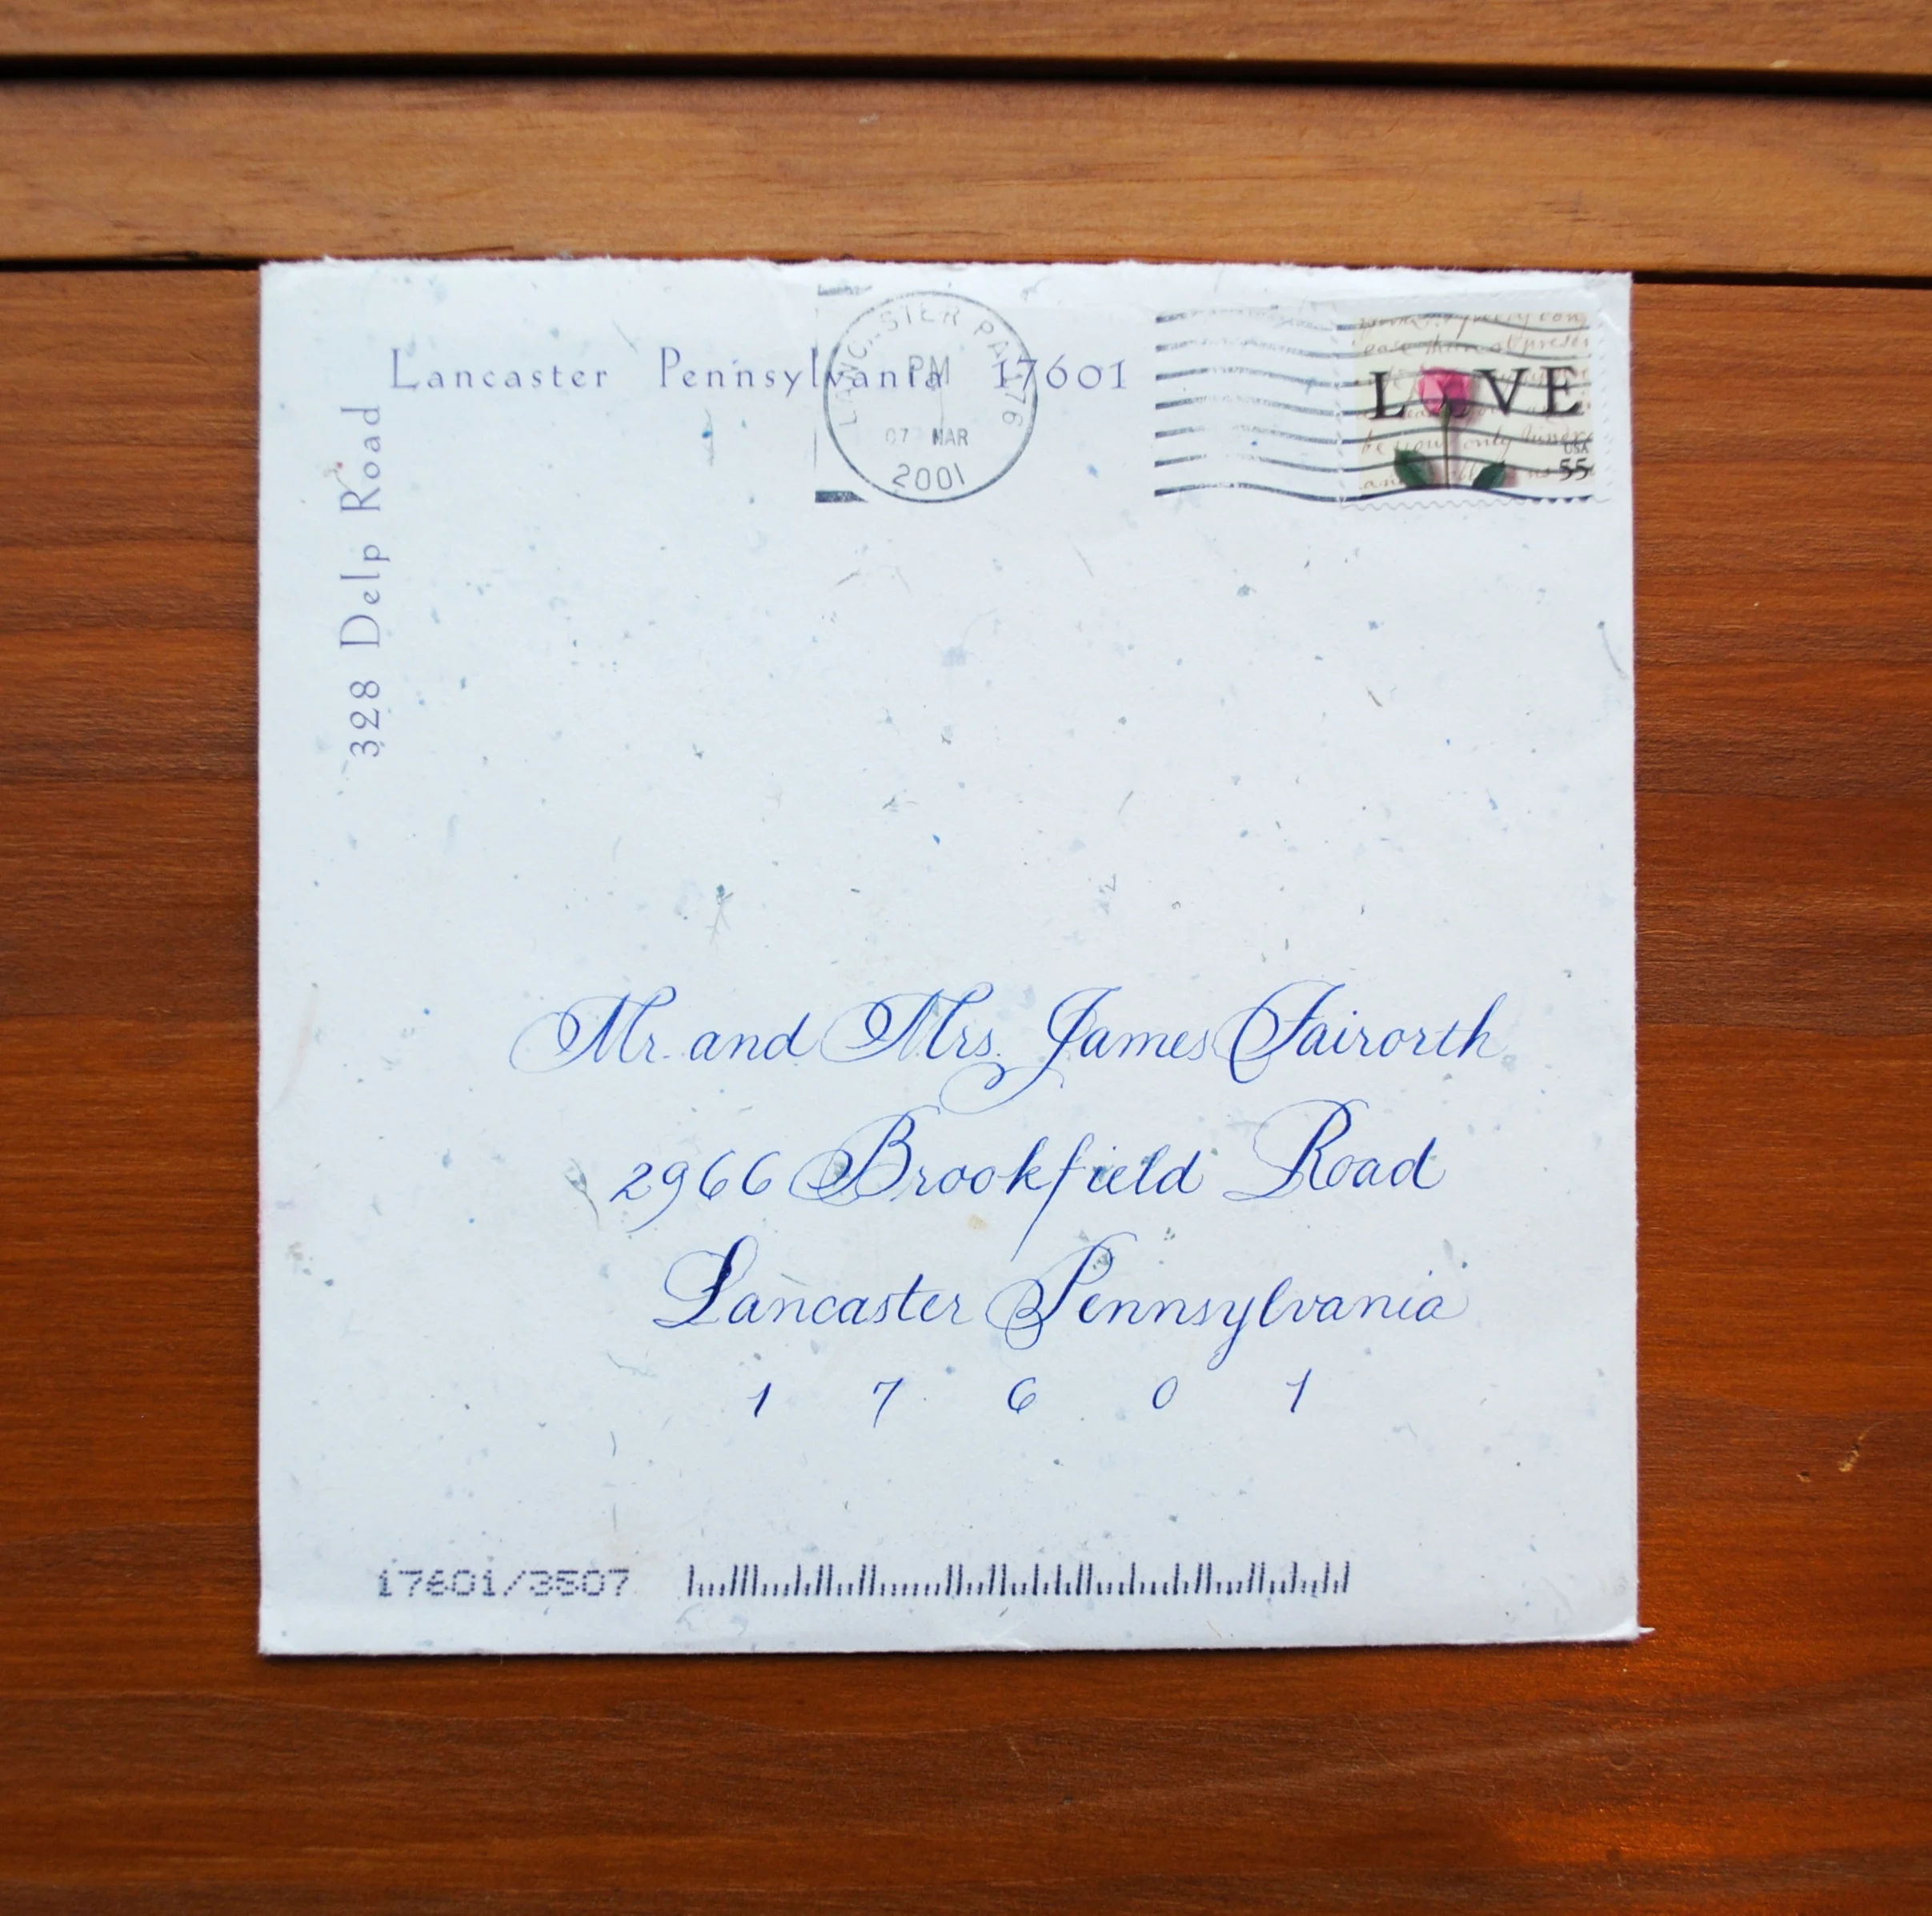 Lancaster Pennsylvania 17601
328 Delp Road
LANCASTER PA 176
PM
07 MAR
2001
LOVE
USA
55
Mr. and Mrs. James Fairorth
2966 Brookfield Road
Lancaster Pennsylvania
1 7 6 0 1
17601/3507